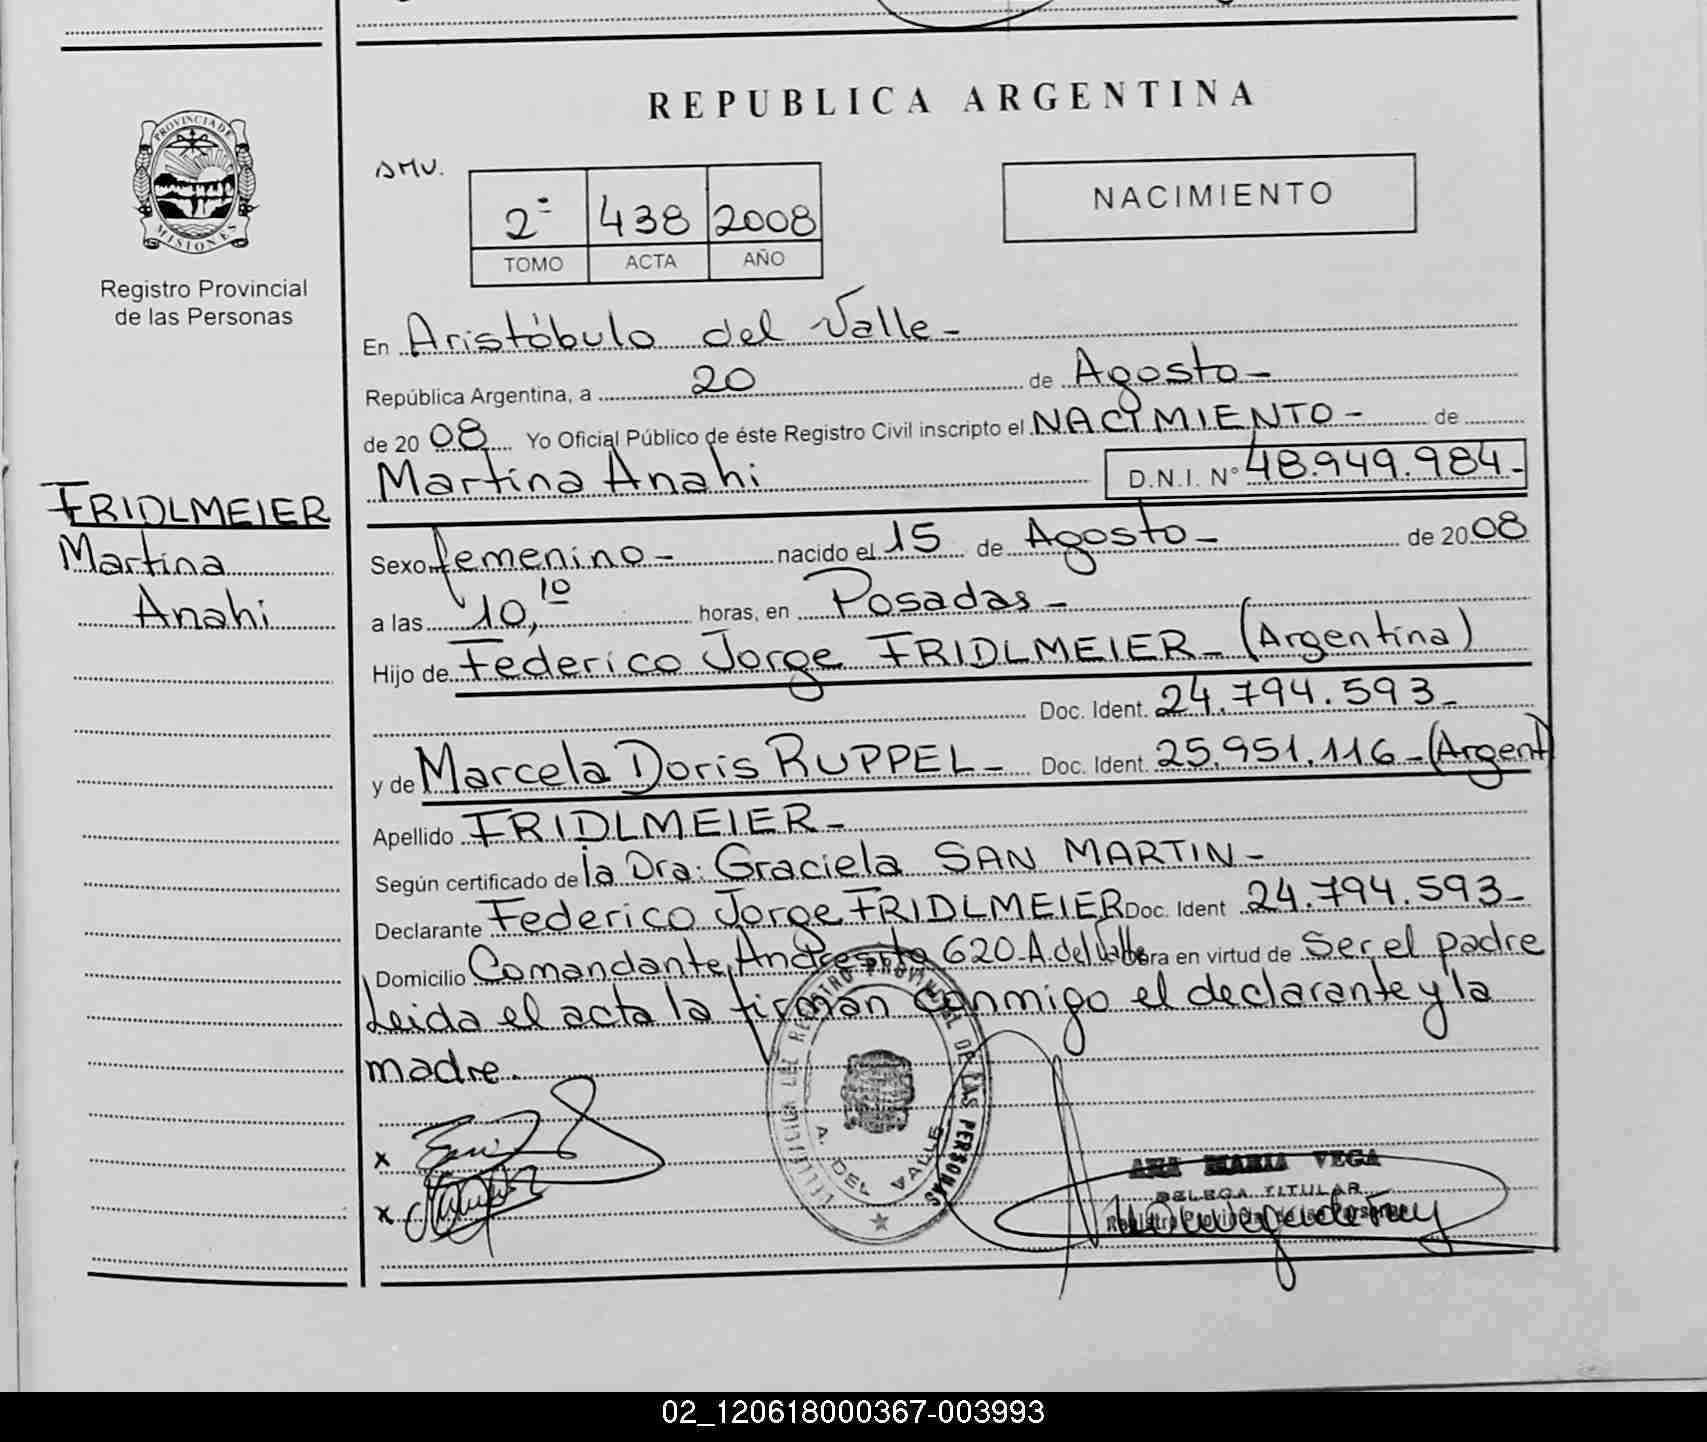 REPUBLICA ARGENTINA
PROVINCIA DE
MISIONES
Registro Provincial
de las Personas
SMV.
2º 438 2008
TOMO ACTA AÑO
NACIMIENTO
En Aristóbulo del Valle-
República Argentina, a 20 de Agosto-
de 20 08 Yo Oficial Público de éste Registro Civil inscripto el NACIMIENTO- de
Martina Anahi D.N.I. N° 48.949.984-
FRIDLMEIER
Martina
Anahi
Sexo femenino- nacido el 15 de Agosto- de 20 08
a las 10,10 horas, en Posadas-
Hijo de Federico Jorge FRIDLMEIER- (Argentina)
Doc. Ident. 24.794.593-
y de Marcela Doris RUPPEL- Doc. Ident. 25.951.116-(Argent)
Apellido FRIDLMEIER-
Según certificado de la Dra: Graciela SAN MARTIN-
Declarante Federico Jorge FRIDLMEIER Doc. Ident 24.794.593-
Domicilio Comandante Andresito 620-A.del Valle bra en virtud de Ser el padre
Leida el acta la firman conmigo el declarante y la
madre.
REGISTRO PROVINCIAL DE LAS PERSONAS
A. DEL VALLE
x
x
ANA MARIA VEGA
DELEGA TITULAR
Registro Provincial de las Personas
02_120618000367-003993